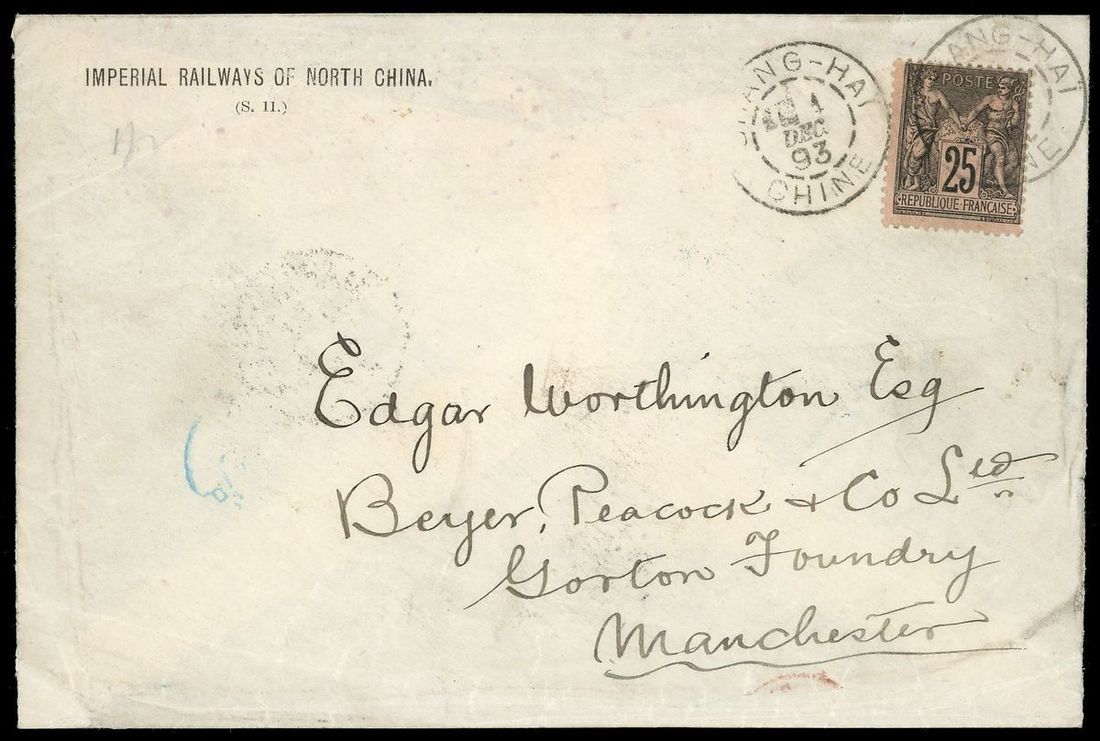 IMPERIAL RAILWAYS OF NORTH CHINA.
(S. 11.)
SHANG-HAI
1
DEC
93
CHINE
ANG-HAI
NE
POSTE
25
REPUBLIQUE FRANÇAISE
Edgar Worthington Esq
Beyer, Peacock & Co Ltd
Gorton Foundry
Manchester